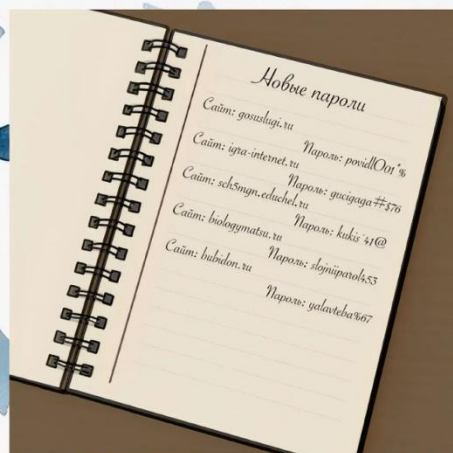 Новые пароли
Сайт: gosuslugi.ru
Пароль: povidlO01*%
Сайт: igra-internet.ru
Пароль: gucigaga##$76
Сайт: sch5mgn.educhel.ru
Пароль: kukis'41@
Сайт: biologymatsu.ru
Пароль: slojniiparol453
Сайт: bubidon.ru
Пароль: yalavteba%67